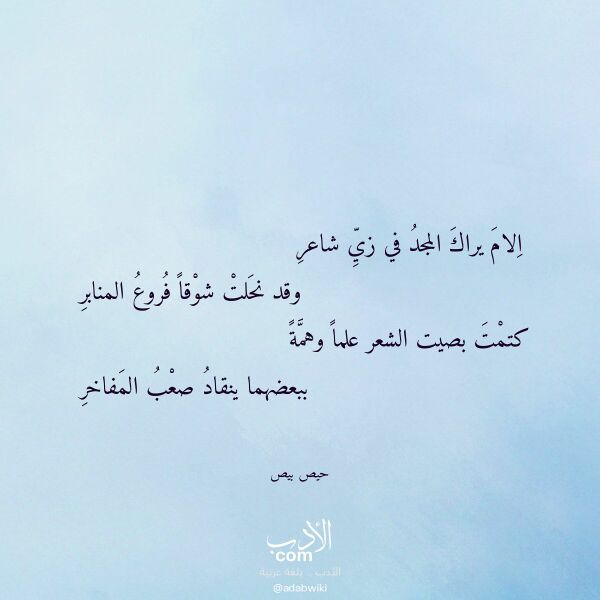 اِلامَ يراكَ المجدُ في زيِّ شاعرِ
وقد نحَلتْ شوْقاً فُروعُ المنابرِ
كتمْتَ بصيت الشعر علماً وهمَّةً
ببعضهما ينقادُ صعْبُ المَفاخرِ
حيص بيص
الأدب
com
الأدب .. بلغة عربية
@adabwiki